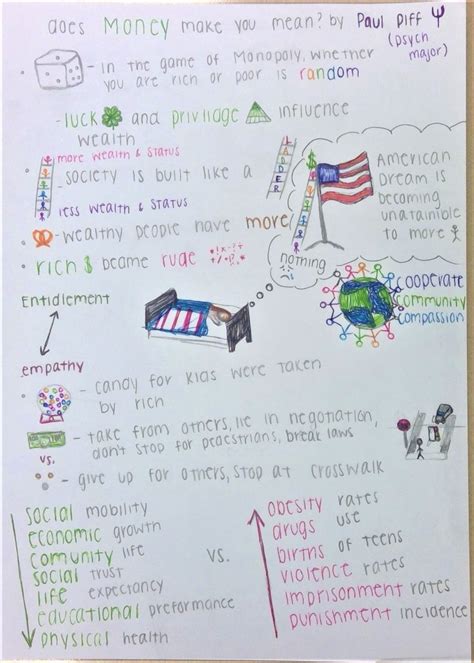 does Money make you mean? by Paul Piff Ψ
(psych major)
- in the game of Monopoly, whether
you are rich or poor is random
- luck and privilage influence
wealth
more wealth & status
- society is built like a
LADDER
less wealth & status
$
American
Dream is
becoming
unatainible
to more
- wealthy people have more
- rich $ became rude
nothing
Entidlement
empathy
cooperate
community
compassion
- candy for kids were taken
by rich
- take from others, lie in negotiation,
don't stop for pedestrians, break laws
vs.
- give up for others, stop at crosswalk
social mobility
economic growth
comunity life
social trust
life expectancy
educational preformance
physical health
vs.
obesity rates
drugs use
births of teens
violence rates
imprisonment rates
punishment incidence